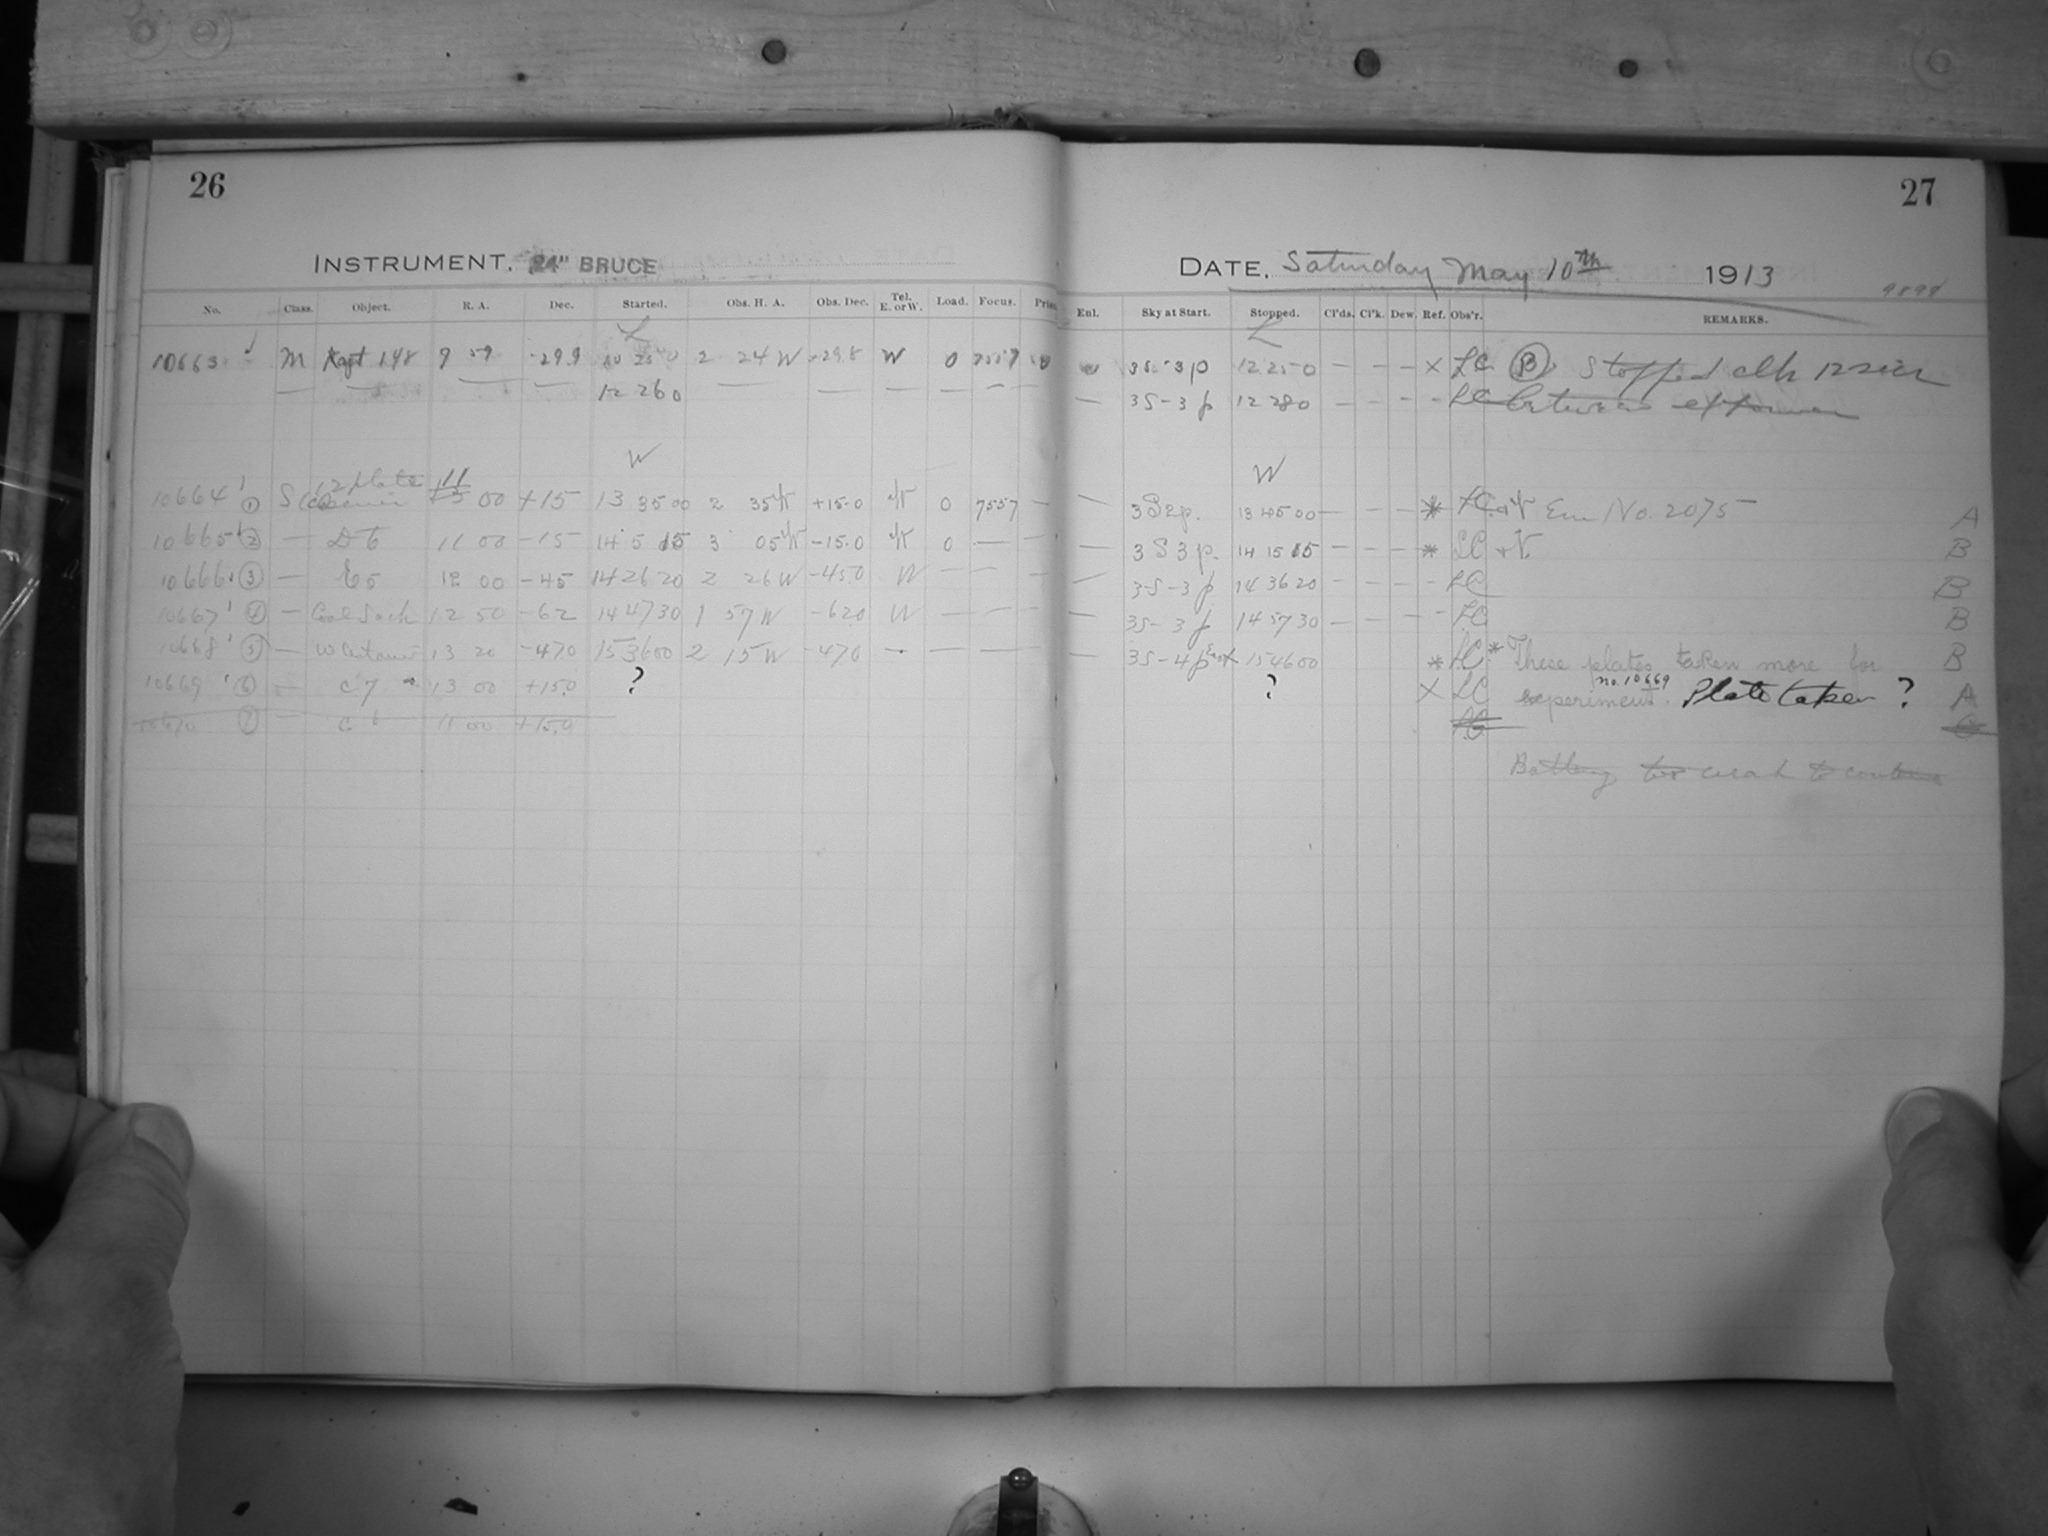 26
27
INSTRUMENT. 24" BRUCE
DATE. Saturday May 10th 1913
No. Class. Object. R. A. Dec. Started. Obs. H. A. Obs. Dec. Tel. E. or W. Load. Focus. Enl. Sky at Start. Stopped. Cl'ds. Cl'k. Dew. Ref. Obs'r. REMARKS.
L L
10663 M Kapt 148 9 59 -29.9 2 24 W -29.8 W 0 3S-3p 12 25 0 — — — × LC (B) Stopped clk 12 sec
— — — — 12 26 0 — — — — — — — 3S-3p 12 28 0 — — — — LC between exposures
W W
12 plate 11
10664 ① 00 +15 13 35 00 2 35 W +15.0 W 0 7557 — — 3S2p. 13 45 00 — — — * LC Em No. 2075 A
10665 ② — D6 11 00 -15 14 5 15 3 05 W -15.0 W 0 — — — 3S3p. 14 15 15 — — — * LC B
10666 ③ — E5 12 00 -45 14 26 20 2 26 W -45.0 W — — — — 3S-3p 14 36 20 — — — — LC B
10667 ④ — Coal Sack 12 50 -62 14 47 30 1 57 W -62.0 W — — — — 3S-3p 14 57 30 — — — — LC B
10668 ⑤ — W Centauri 13 20 -47.0 15 36 00 2 15 W -47.0 — — — — — 3S-4p 15 46 00 * LC * These plates taken more for B
10669 ⑥ — C7 13 00 +15.0 ? ? × LC experiment. no. 10669 Plate taken ? A
10670 ⑦ — C6 11 00 +15.0 LC
Battery too weak to continue